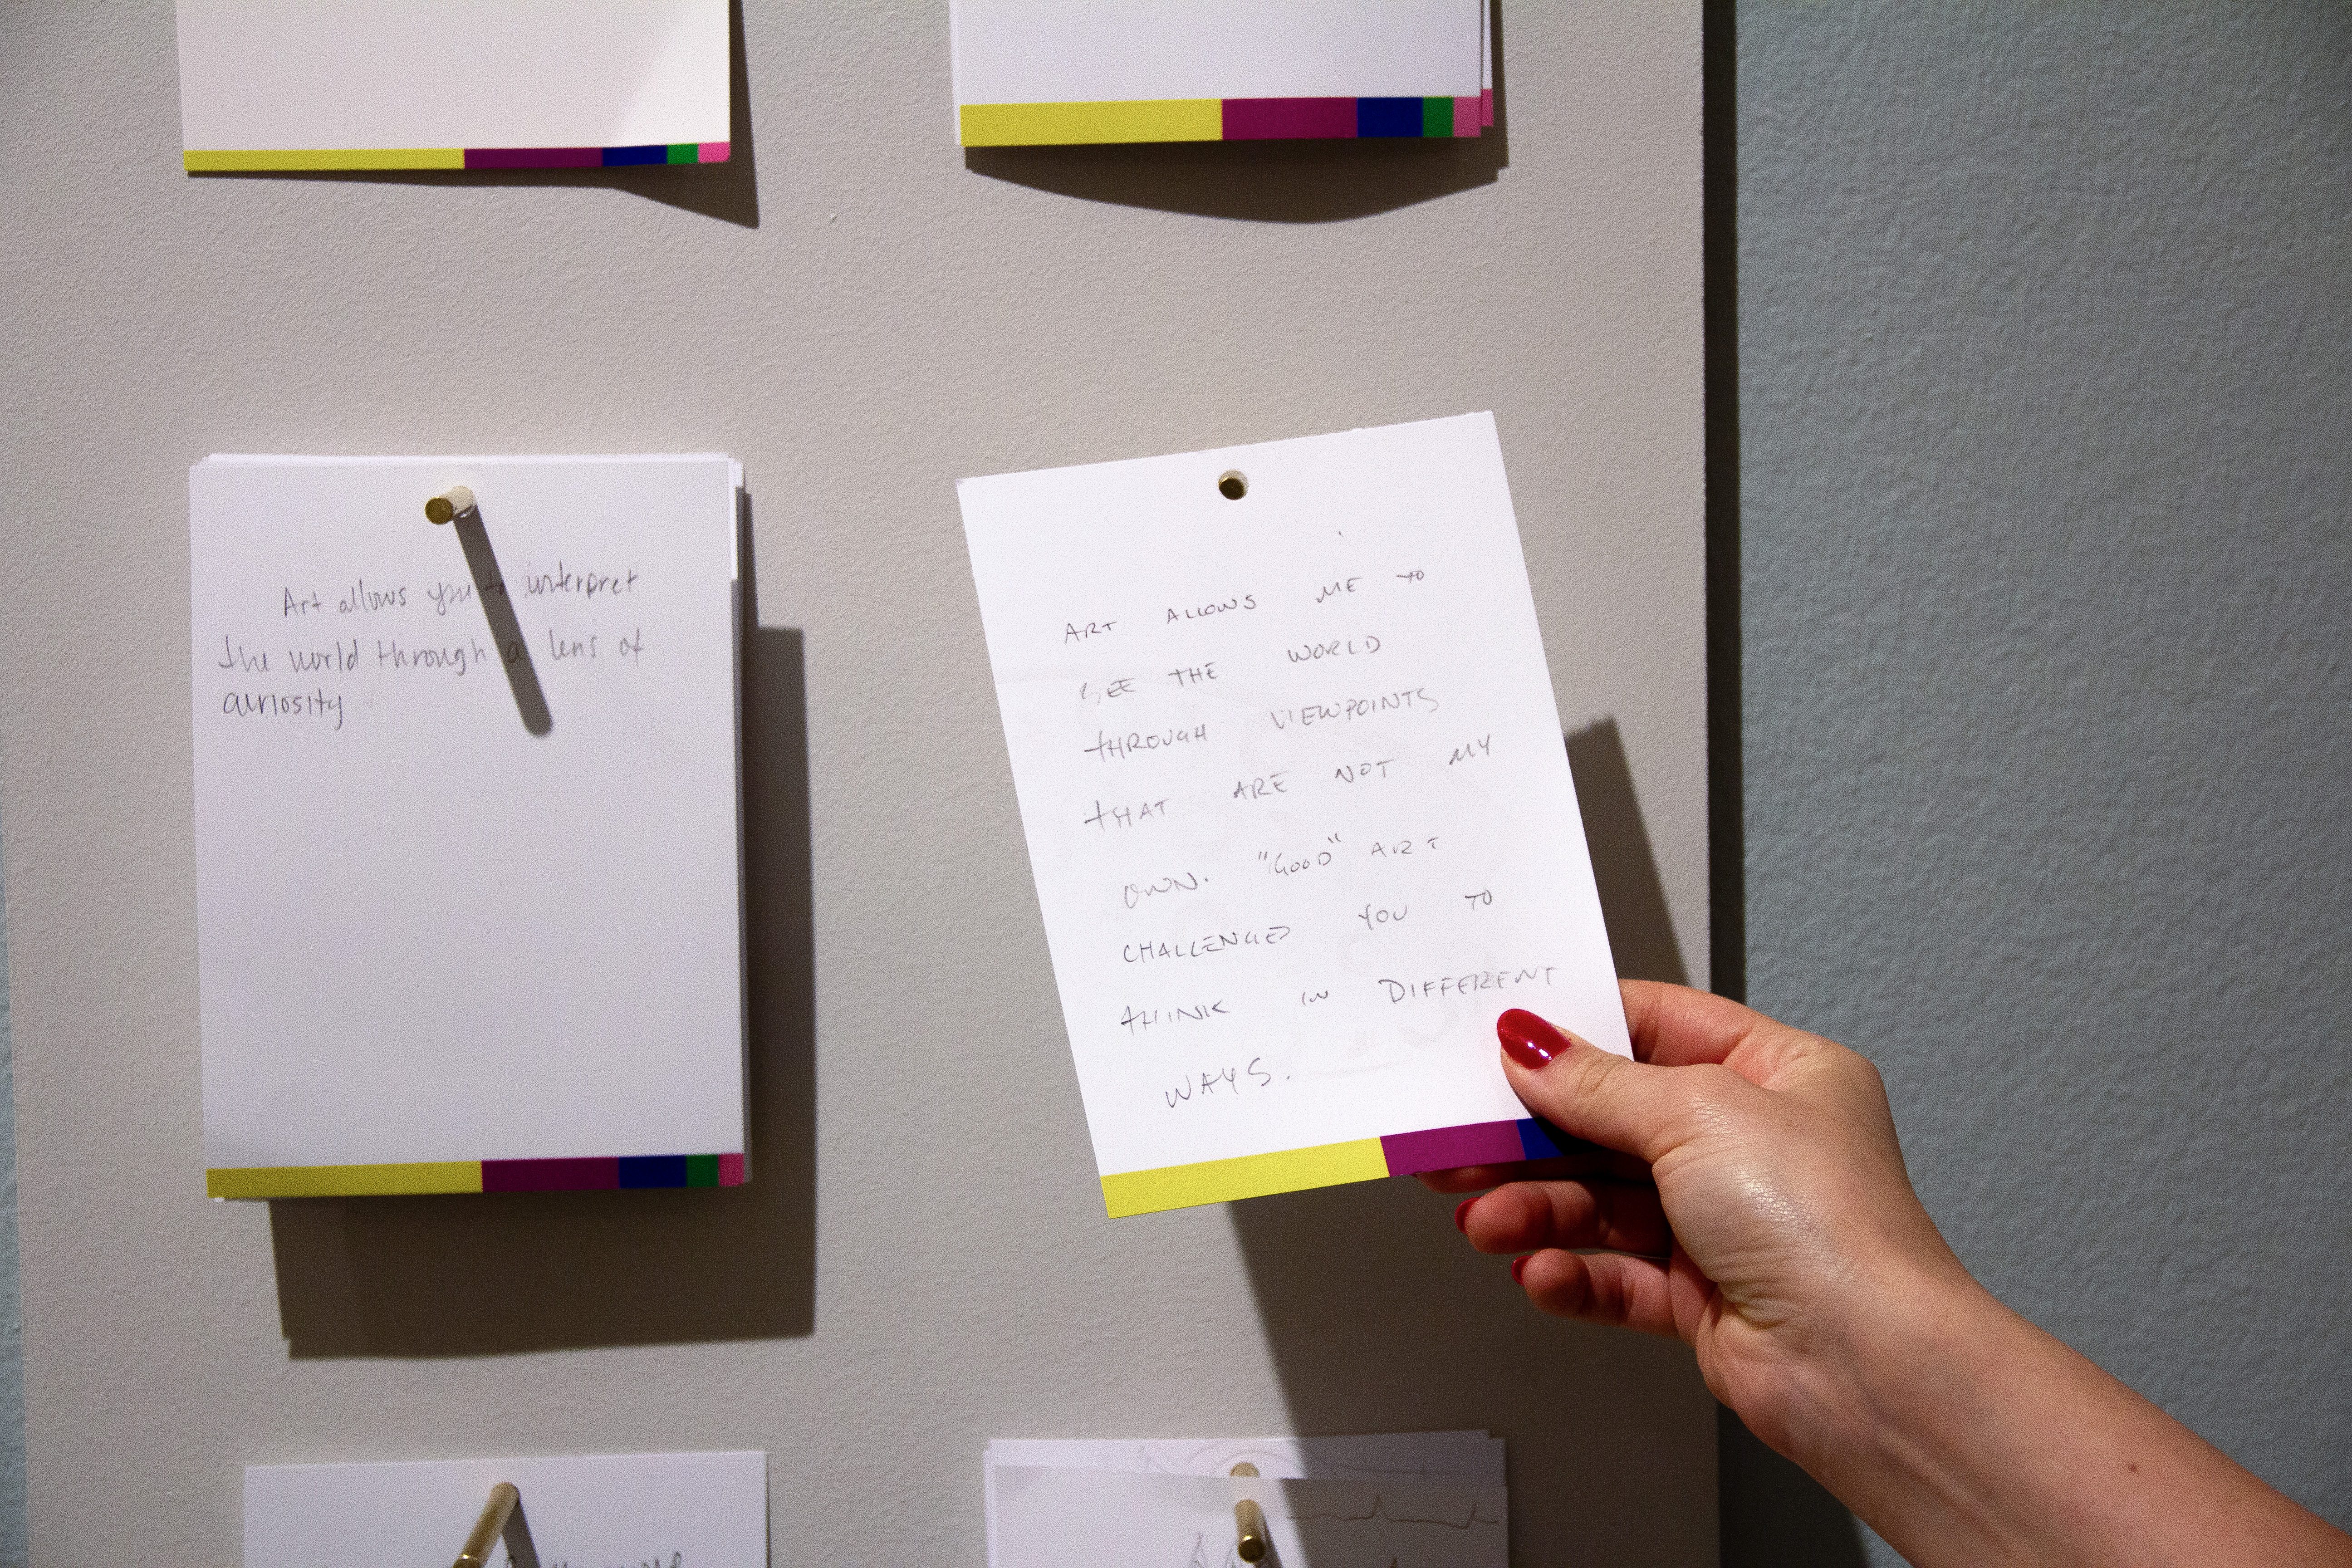 Art allows you to interpret
the world through a lens of
curiosity
ART ALLOWS ME TO
SEE THE WORLD
THROUGH VIEWPOINTS
THAT ARE NOT MY
OWN. "GOOD" ART
CHALLENGED YOU TO
THINK IN DIFFERENT
WAYS.